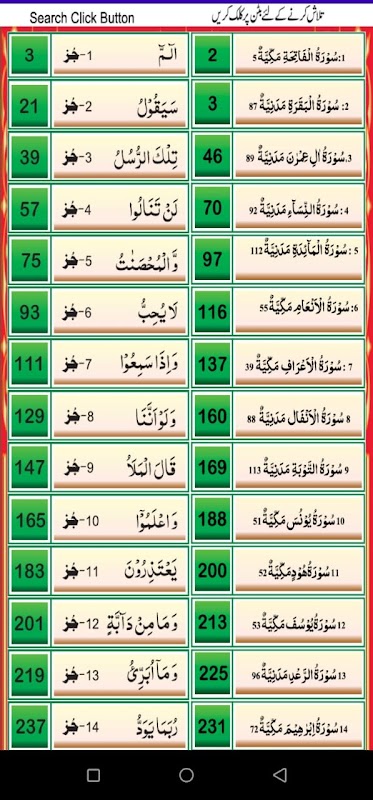 Search Click Button
تلاش کرنے کے لئے بٹن پر کلک کریں
3 جُز -1 الٓمّٓ
2 1: سُوْرَةُ الْفَاتِحَةِ مَكِّيَّةٌ 5
21 جُز -2 سَيَقُوْلُ
3 2: سُوْرَةُ الْبَقَرَةِ مَدَنِيَّةٌ 87
39 جُز -3 تِلْكَ الرُّسُلُ
46 3. سُوْرَةُ اٰلِ عِمْرٰنَ مَدَنِيَّةٌ 89
57 جُز -4 لَنْ تَنَالُوا
70 4: سُوْرَةُ النِّسَآءِ مَدَنِيَّةٌ 92
75 جُز -5 وَّالْمُحْصَنٰتُ
97 5: سُوْرَةُ الْمَآئِدَةِ مَدَنِيَّةٌ 112
93 جُز -6 لَا يُحِبُّ
116 6: سُوْرَةُ الْاَنْعَامِ مَكِّيَّةٌ 55
111 جُز -7 وَاِذَا سَمِعُوْا
137 7: سُوْرَةُ الْاَعْرَافِ مَكِّيَّةٌ 39
129 جُز -8 وَلَوْ اَنَّنَا
160 8 سُوْرَةُ الْاَنْفَالِ مَدَنِيَّةٌ 88
147 جُز -9 قَالَ الْمَلَاُ
169 9 سُوْرَةُ التَّوْبَةِ مَدَنِيَّةٌ 113
165 جُز -10 وَاعْلَمُوْٓا
188 10 سُوْرَةُ يُوْنُسَ مَكِّيَّةٌ 51
183 جُز -11 يَعْتَذِرُوْنَ
200 11 سُوْرَةُ هُوْدٍ مَكِّيَّةٌ 52
201 جُز -12 وَمَا مِنْ دَآبَّةٍ
213 12 سُوْرَةُ يُوْسُفَ مَكِّيَّةٌ 53
219 جُز -13 وَمَآ اُبَرِّئُ
225 13 سُوْرَةُ الرَّعْدِ مَدَنِيَّةٌ 96
237 جُز -14 رُبَمَا يَوَدُّ
231 14 سُوْرَةُ اِبْرٰهِيْمَ مَكِّيَّةٌ 72